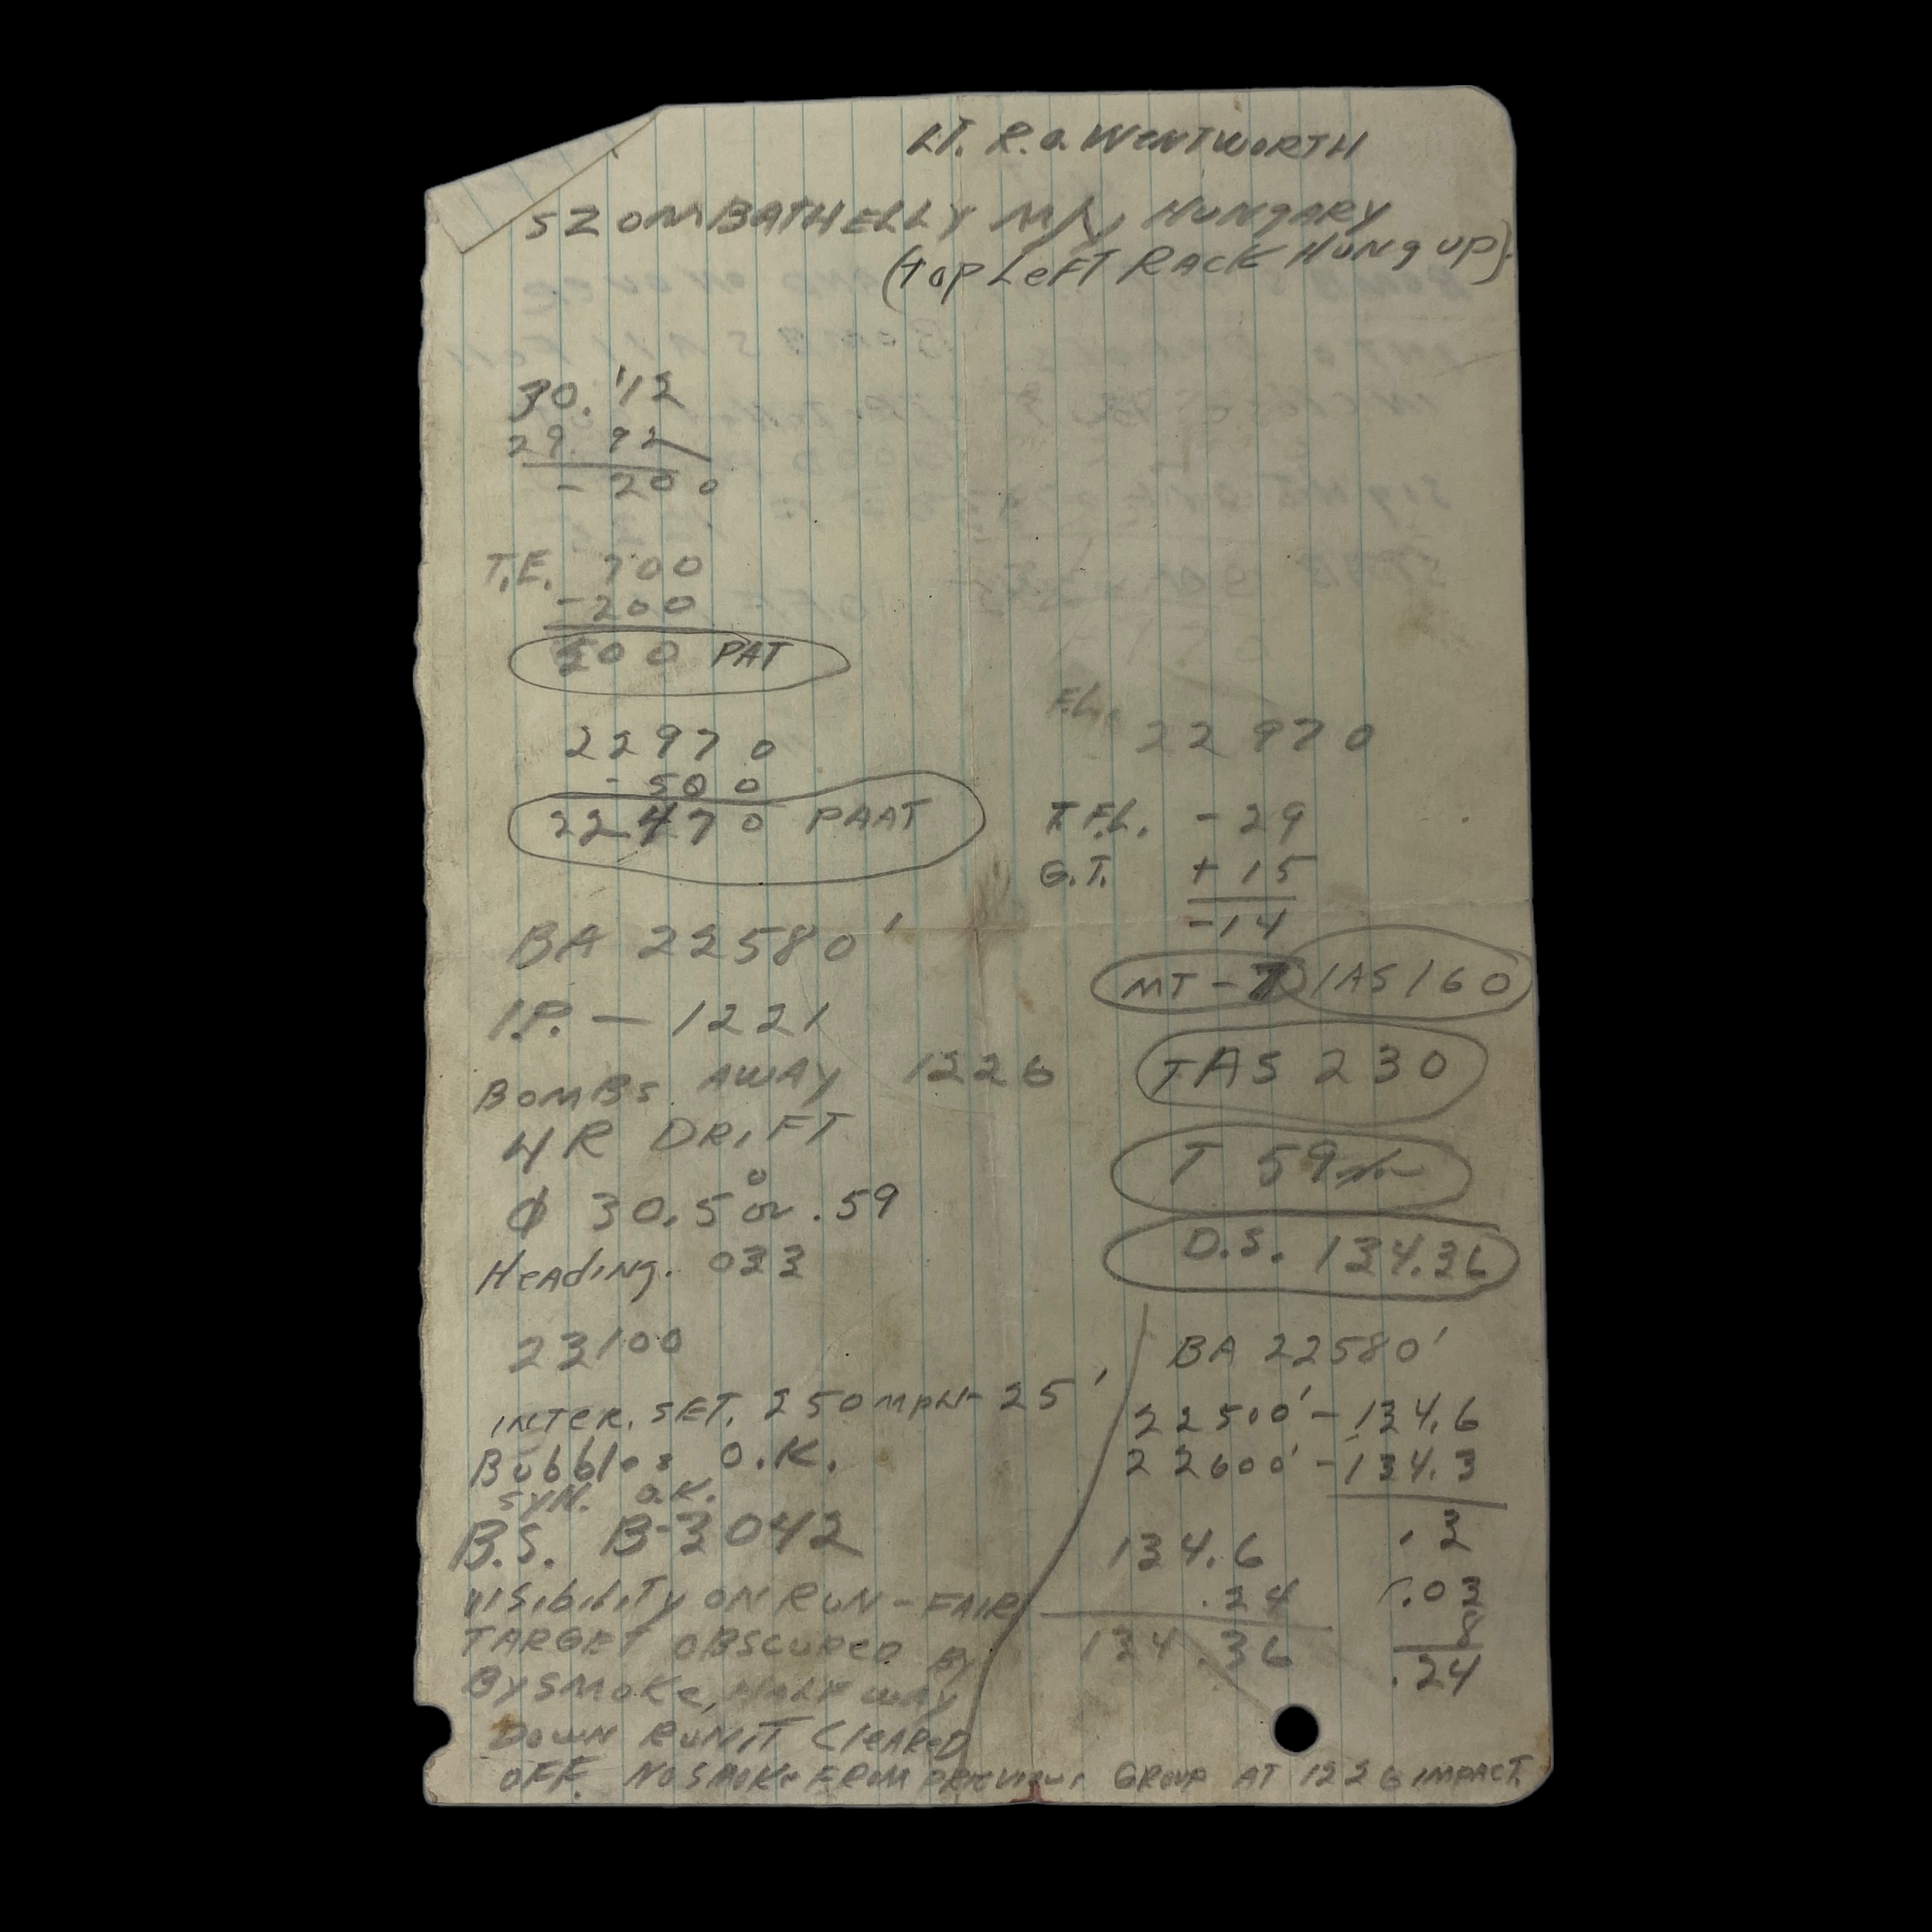 LT. R.O. WENTWORTH
SZOMBATHELLY M/Y, HUNGARY
(TOP LEFT RACK HUNG UP).
30.12
29.92
- 200
T.E. 700
-200
500 PAT
22970
-500
22470 PAAT
BA 22580'
I.P. — 1221
BOMBS AWAY 1226
4R DRIFT
Ø 30.5° or .59
HEADING. 033
23100
INTER. SET. 250 MPH - 25'
BUBBLES O.K.
SYN. O.K.
B.S. B-3042
VISIBILITY ON RUN - FAIR
TARGET OBSCURED BY
BY SMOKE, HALF WAY
DOWN RUN IT CLEARED
OFF. NO SMOKE FROM PREVIOUS GROUP AT 1226 IMPACT.
F.L. 22970
T.F.L. - 29
G.T. + 15
-14
MT - 7 IAS 160
TAS 230
T 59
D.S. 134.36
BA 22580'
22500' - 134.6
22600' - 134.3
.3
134.6
.24
134.36
.03
8
.24